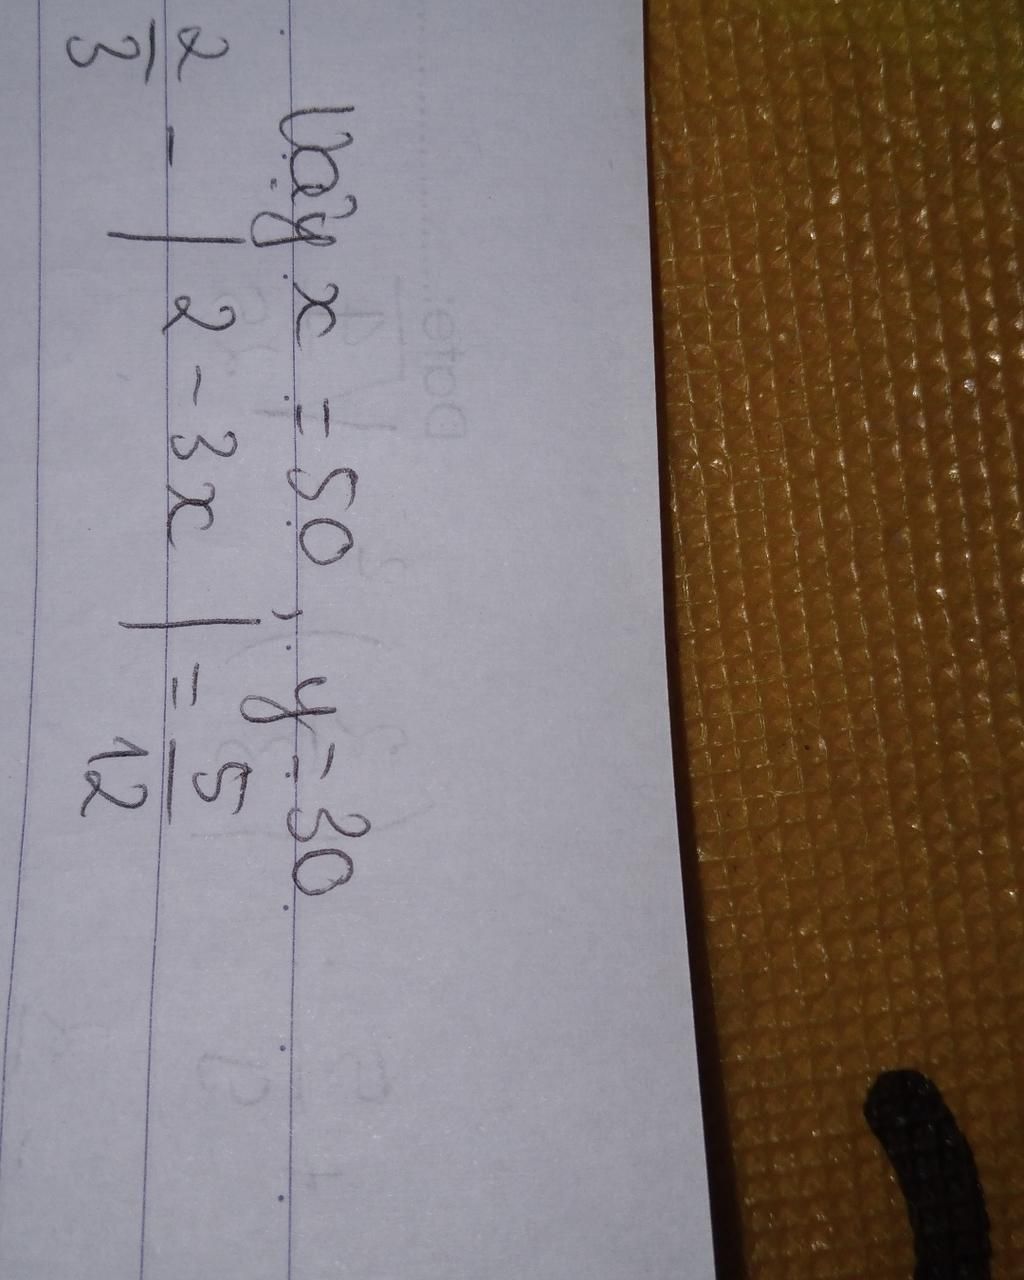 Vậy x = 50, y = 30
2/3 - | 2 - 3x | = 5/12